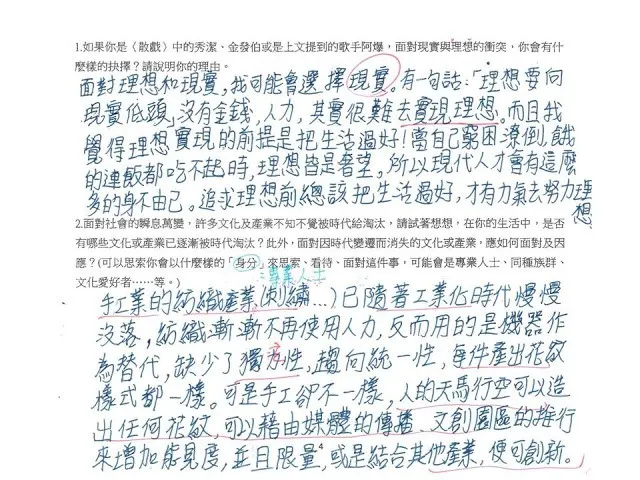 1.如果你是〈散戲〉中的秀潔、金發伯或是上文提到的歌手阿爆，面對現實與理想的衝突，你會有什
麼樣的抉擇？請說明你的理由。
面對理想和現實，我可能會選擇現實。有一句話：「理想要向
現實低頭」沒有金錢，人力，其實很難去實現理想。而且我
覺得理想實現的前提是把生活過好！當自己窮困潦倒，餓
的連飯都吃不起時，理想皆是奢望。所以現代人才會有這麼
多的身不由己。追求理想前總該把生活過好，才有力氣去努力理
想
2.面對社會的瞬息萬變，許多文化及產業不知不覺被時代給淘汰，請試著想想，在你的生活中，是否
有哪些文化或產業已逐漸被時代淘汰？此外，面對因時代變遷而消失的文化或產業，應如何面對及因
應？(可以思索你會以什麼樣的「身分」來思索、看待、面對這件事，可能會是專業人士、同種族群、
:專業人士
文化愛好者……等。)
手工業的紡織產業(刺繡...)已隨著工業化時代慢慢
沒落，紡織漸漸不再使用人力，反而用的是機器作
為替代，缺少了獨特性，趨向統一性，每件產出花紋
樣式都一樣。可是手工卻不一樣，人的天馬行空可以造
出任何花紋，可以藉由媒體的傳播、文創園區的推行
來增加能見度，並且限量，或是結合其他產業，便可創新。
4